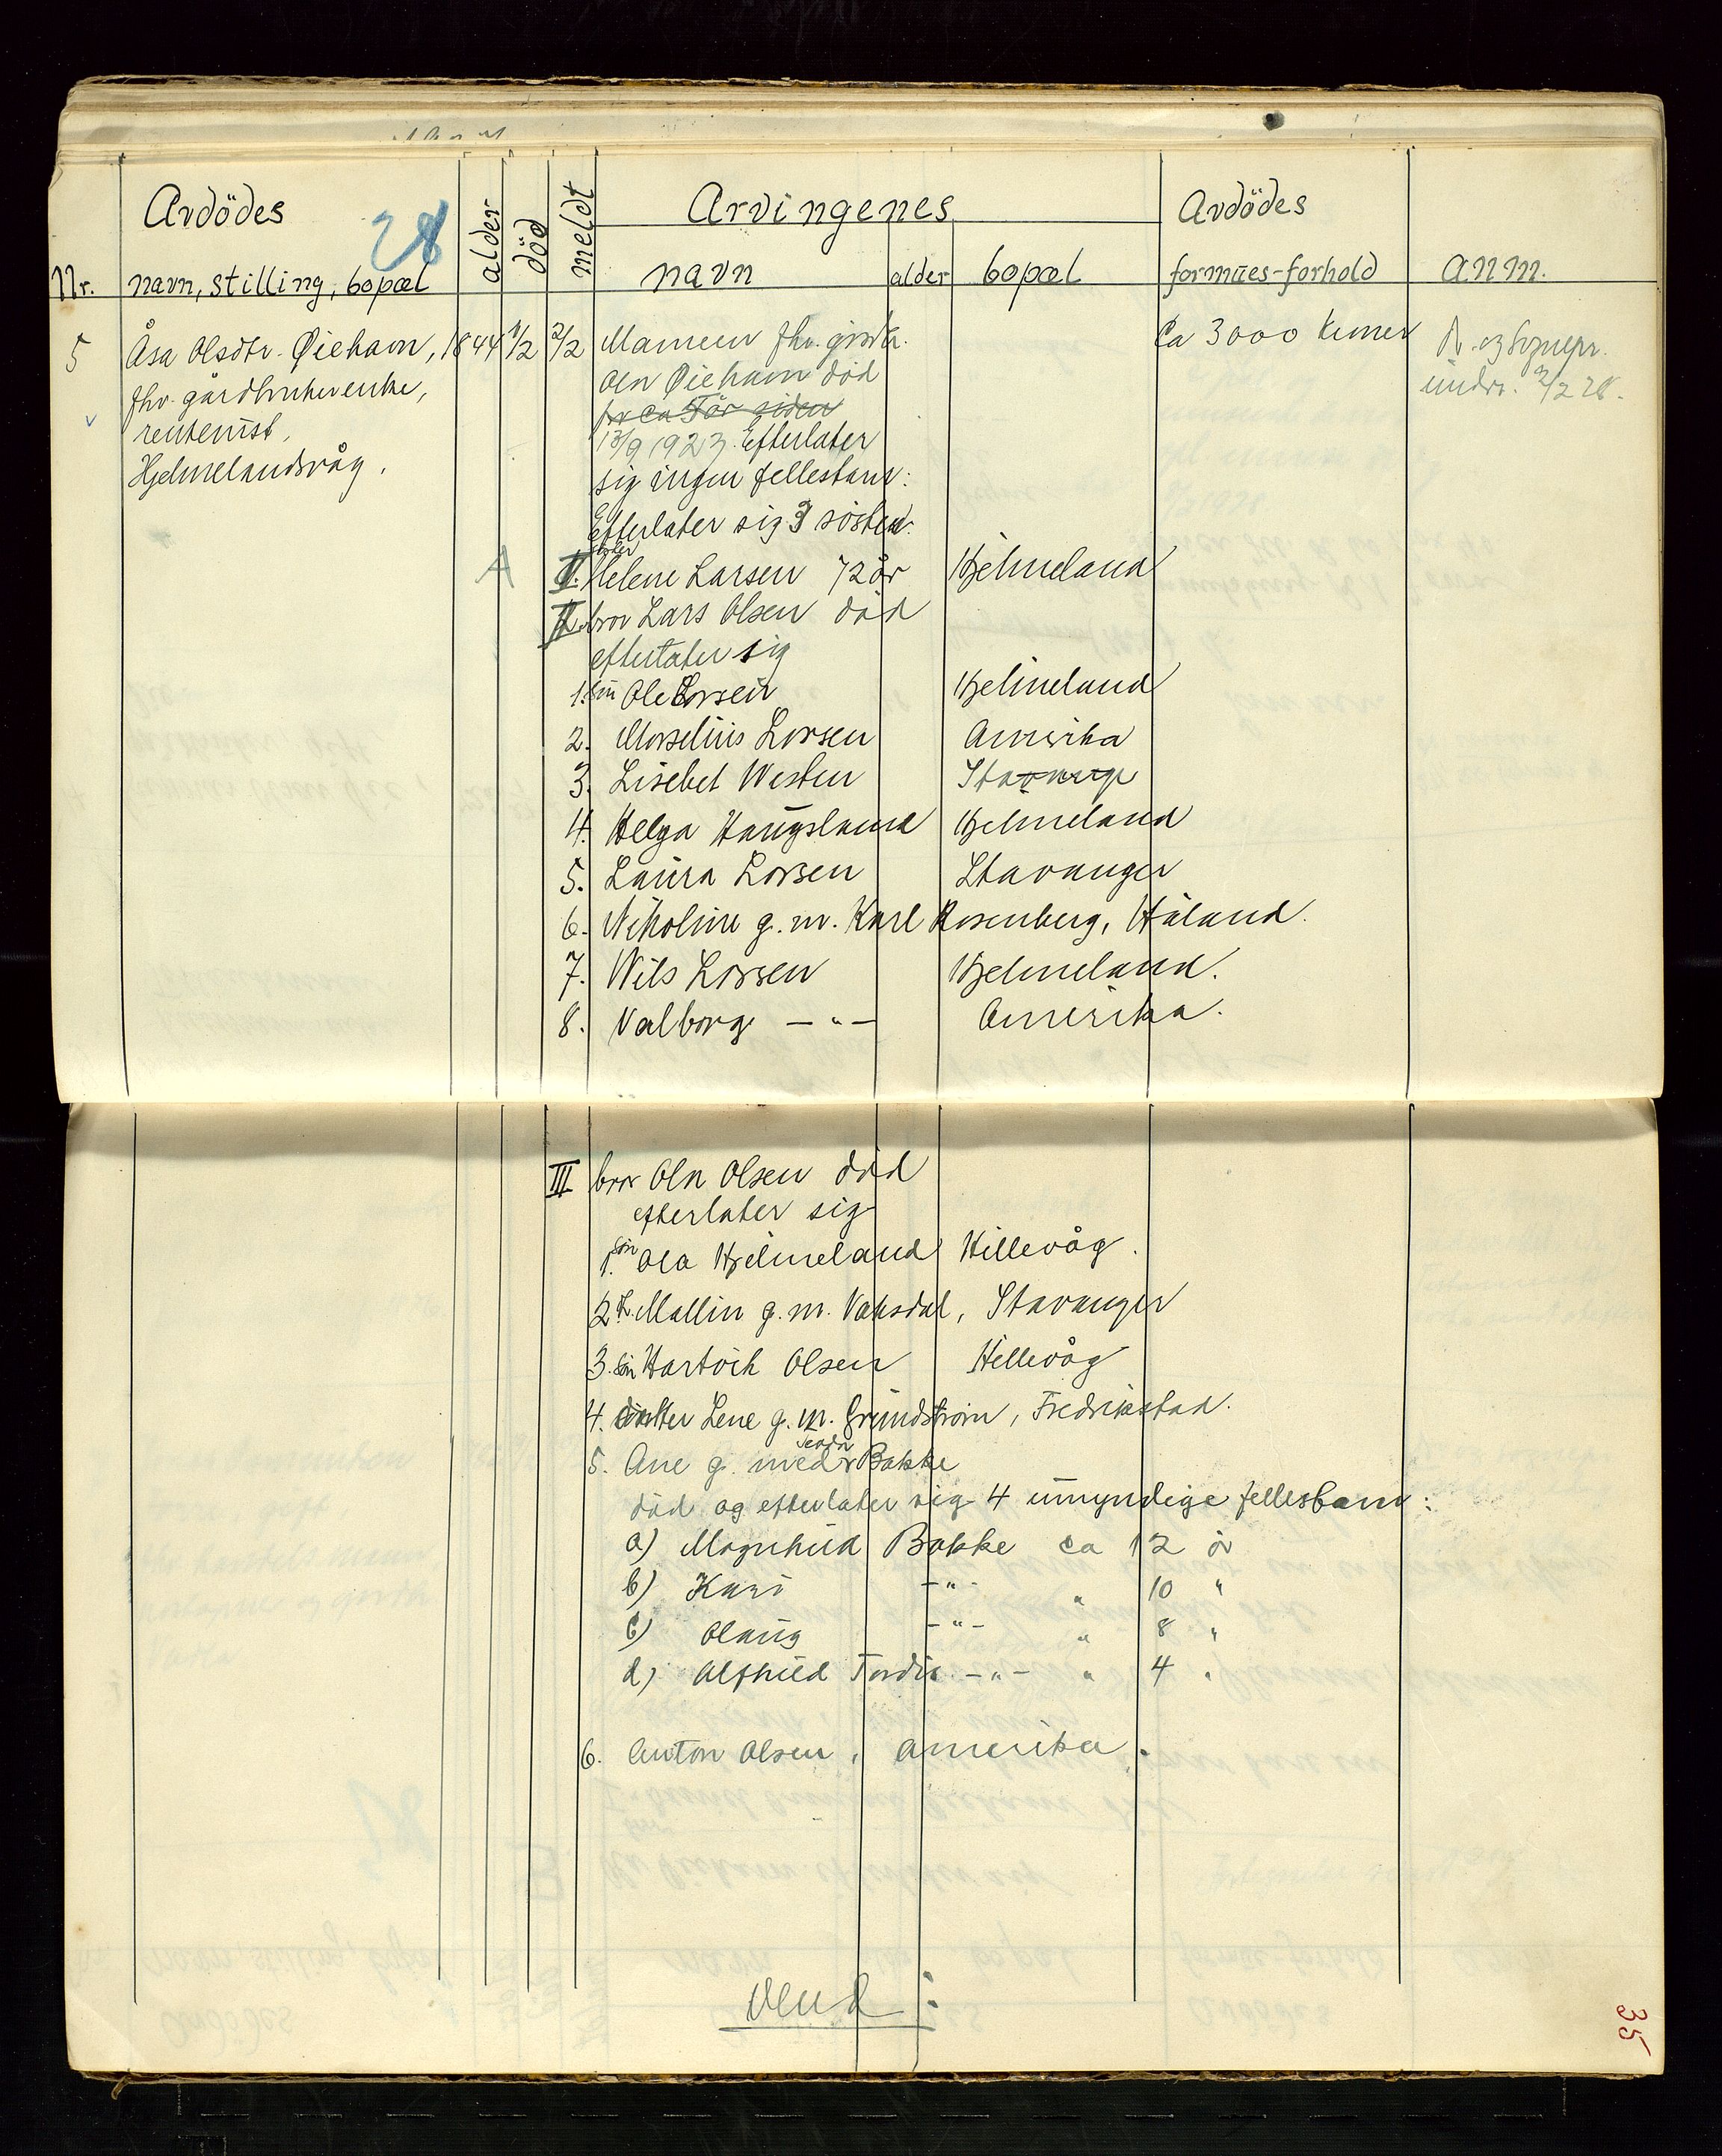 Avdödes
28
alder
död
meldt
Arvingenes
Avdödes
Nr.
navn, stilling, bopæl
navn
alder
bopæl
formues-forhold
anm.
5
Åsa Olsdtr. Øiehavn, 1844 1/2 2/2
fhv. gårdbrukerenke,
rentenist,
Hjelmelandsvåg.
Mannen fhv. grdbr.
Ola Øiehavn död
for ca 5 år siden
13/9 1923. Efterlater
sig ingen fellesbarn.
Efterlater sig 3 sösken.
Ca 3000 kroner
undrr. 2/2 28.
A
söster
I. Helene Larsen 72 år Hjelmeland
II. bror Lars Olsen död
efterlater sig
1. sön Ole Larsen Hjelmeland
2. Marselius Larsen Amerika
3. Lisebet Westen Stavanger
4. Helga Haugsland Hjelmeland
5. Laura Larsen Stavanger
6. Nikoline g. m. Karl Rosenberg, Håland.
7. Nils Larsen Hjelmeland.
8. Valborg — " — Amerika.
III bror Ola Olsen död
efterlater sig
1. sön Ola Hjelmeland Hillevåg.
2. d. Mallin g. m. Vaksdal, Stavanger
3. sön Hartvik Olsen Hillevåg
4. datter Lene g. m. Grundstrøm, Fredrikstad.
5. Ane g. med Bakke
död og efterlater sig 4 umyndige fellesbarn:
a) Magnhild Bakke ca 12 år
b) Kari - " - " 10 "
c) Olaug - " - " 8 "
d) Alfhild Tordis - " - " 4 "
6. Anton Olsen, Amerika.
Vend:
35